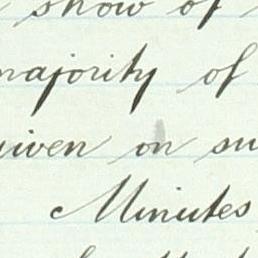 show of
majority of
given on su
Minutes